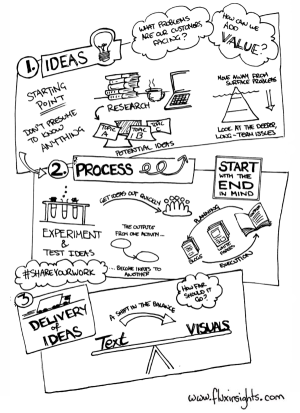 1. IDEAS
WHAT PROBLEMS
ARE OUR CUSTOMERS
FACING?
HOW CAN WE
ADD
VALUE?
STARTING
POINT =
DON'T PRESUME
TO KNOW
ANYTHING
RESEARCH
TOPIC
TOPIC
B
TOPIC
POTENTIAL IDEAS
MOVE AWAY FROM
SURFACE PROBLEMS
LOOK AT THE DEEPER,
LONG-TERM ISSUES
2. PROCESS
START
WITH THE
END
IN MIND
GET IDEAS OUT QUICKLY
EXPERIMENT
&
TEST IDEAS
THE OUTPUTS
FROM ONE ACTIVITY...
...BECOME INPUTS TO
ANOTHER
PLANNING
BLOGS
EXECUTION
#SHAREYOURWORK
3
DELIVERY
of
IDEAS
HOW FAR
SHOULD IT
GO?
A SHIFT IN THE BALANCE
Text
VISUALS
www.fluxinsights.com